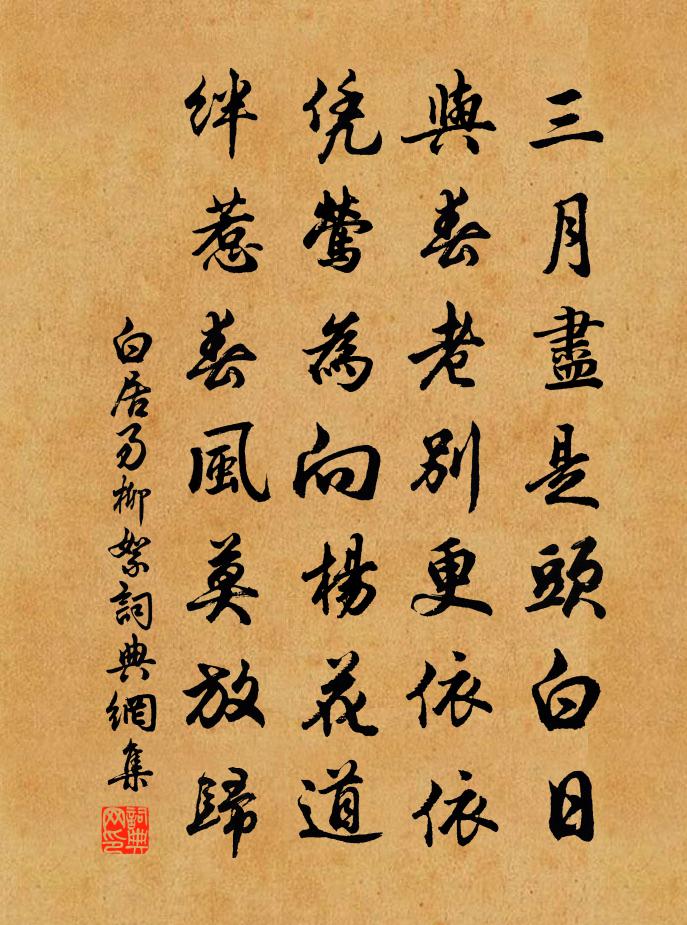 三月盡是頭白日
與春老別更依依
凭鶯為向楊花道
絆惹春風莫放歸
白居易柳絮詞典網集
詞典网印